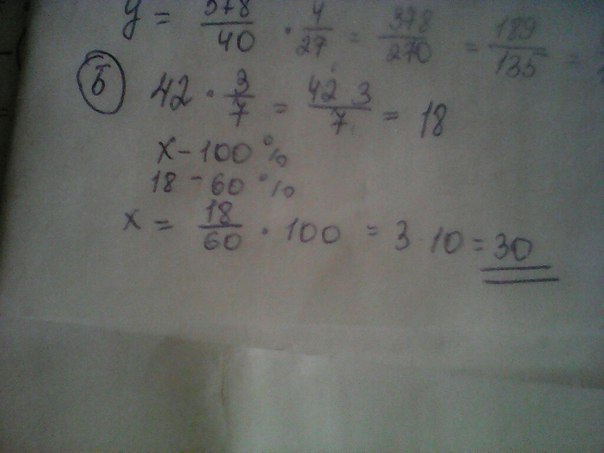 y = 378/40 · 4/27 = 378/270 = 189/135 =
Б 42 · 3/7 = 42 3/7 = 18
x - 100 %
18 - 60 %
x = 18/60 · 100 = 3 · 10 = 30